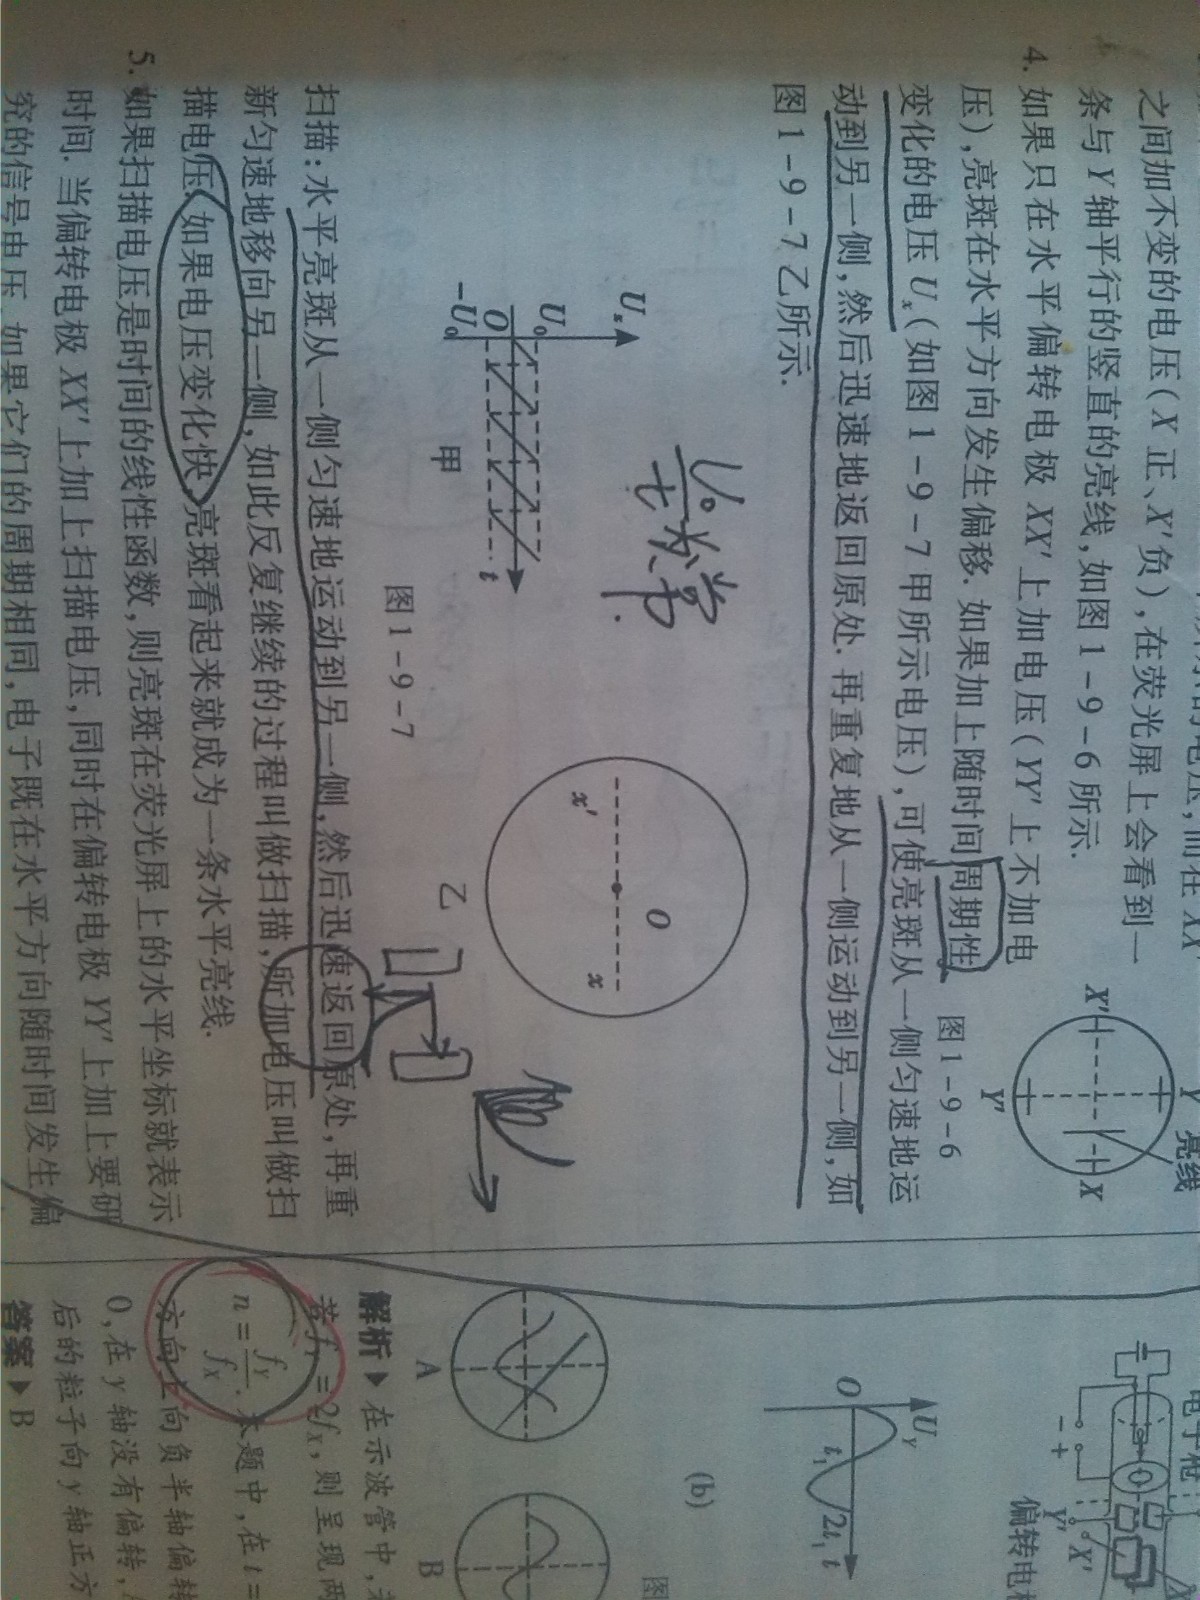 之间加不变的电压(X正、X′负),在荧光屏上会看到一
条与Y轴平行的竖直的亮线,如图1-9-6所示.
4. 如果只在水平偏转电极XX′上加电压(YY′上不加电
压),亮斑在水平方向发生偏移.如果加上随时间周期性
变化的电压Uₓ(如图1-9-7甲所示电压),可使亮斑从一侧匀速地运
动到另一侧,然后迅速地返回原处.再重复地从一侧运动到另一侧,如
图1-9-7乙所示.
X′
Y
亮线
X
Y′
图1-9-6
Uₓ
U₀
O
-U₀
t
甲
U₀
t
为常
O
x′
x
乙
图1-9-7
扫描:水平亮斑从一侧匀速地运动到另一侧,然后迅速返回原处,再重
新匀速地移向另一侧,如此反复继续的过程叫做扫描,所加电压叫做扫
描电压.如果电压变化快,亮斑看起来就成为一条水平亮线.
5. 如果扫描电压是时间的线性函数,则亮斑在荧光屏上的水平坐标就表示
时间.当偏转电极XX′上加上扫描电压,同时在偏转电极YY′上加上要研
究的信号电压,如果它们的周期相同,电子既在水平方向随时间发生偏
电子枪
- +
Y′
X′
偏转电极
U_Y
O
t₁
2t₁
t
(b)
图
A
B
解析▶在示波管中,
若f_Y=2f_X,则呈现两
n=f_Y/f_X.本题中,在t=
方向上向负半轴偏转
0,在y轴没有偏转,
后的粒子向y轴正方
答案▶B